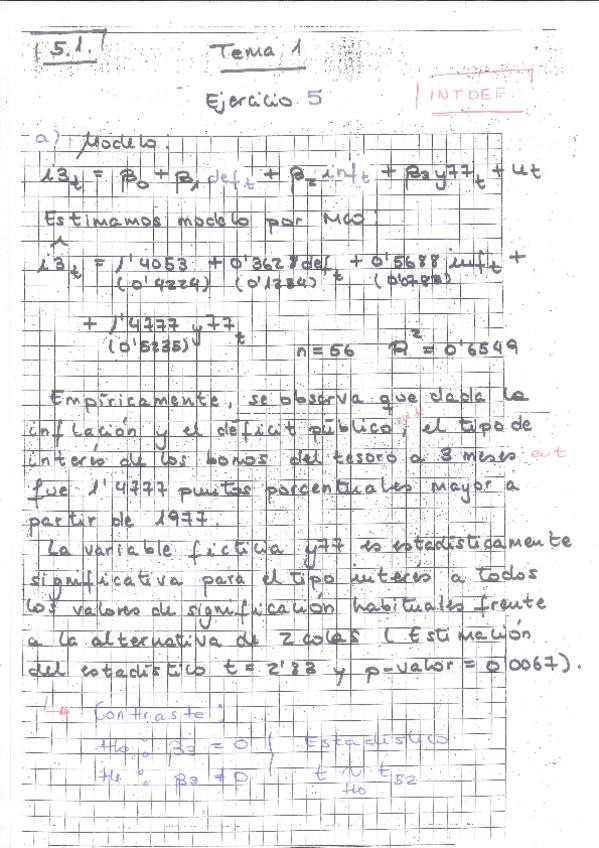 5.1.
Tema 1
Ejercicio 5
INTDEF.
a) Modelo.
i3t = β0 + β1 deft + β2 inft + β3 y77t + ut
Estimamos modelo por MCO:
î3t = 1'4053 + 0'3628 deft + 0'5688 inft +
(0'4224) (0'1234)
+ 1'4777 y77t
(0'5235)
n=56 R² = 0'6549
Empíricamente, se observa que dada la
inflación y el déficit público, el tipo de
interés de los bonos del tesoro a 3 meses en t
fue 1'4777 puntos porcentuales mayor a
partir de 1977.
La variable ficticia y77 es estadísticamente
significativa para el tipo interés a todos
los valores de significación habituales frente
a la alternativa de 2 colas (Estimación
del estadístico t = 2'83 y p-valor = 0'0067).
↳ Contraste:
H0: β3 = 0 Estadístico
H1: β3 ≠ 0 t ~ t52
H0